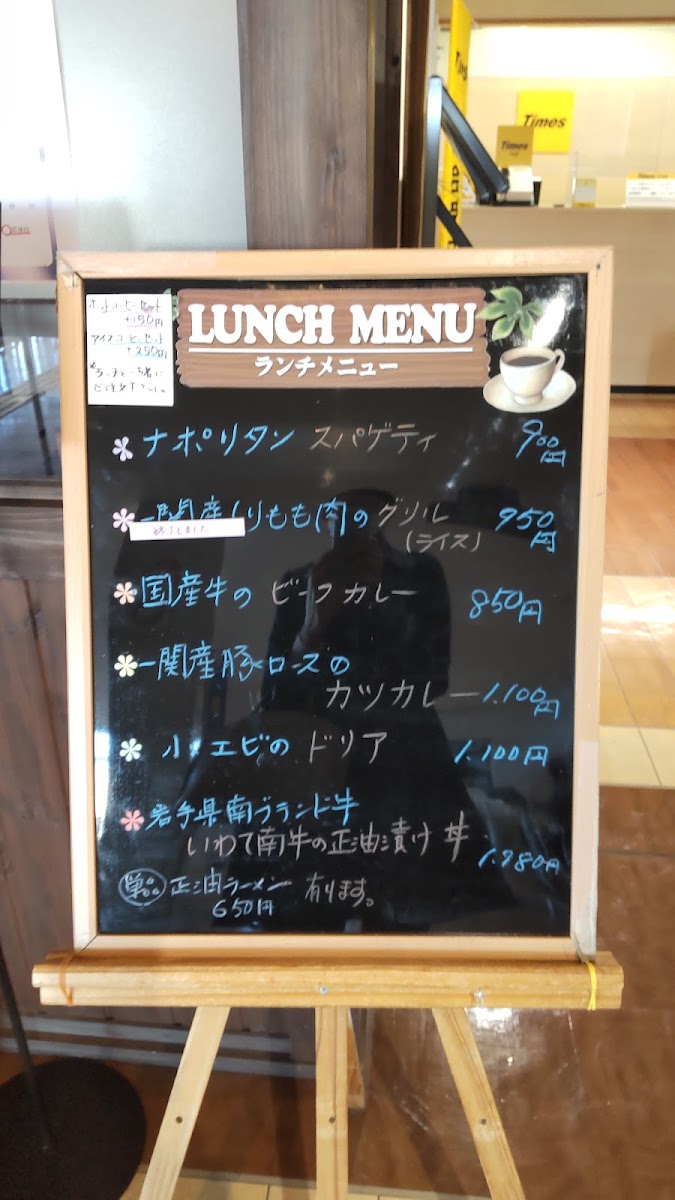 Times
Times
ホットコーヒーセット
+150円
アイスコーヒーセット
+250円
LUNCH MENU
ランチメニュー
ナポリタン スパゲティ 900円
一関産 もも肉のグリル 950円
(ライス)
終了しました
国産牛の ビーフカレー 850円
一関産豚ロースの
カツカレー 1.100円
小エビの ドリア 1.100円
岩手県南ブランド牛
いわて南牛の正油漬け丼 1.980円
単品 正油ラーメン 有ります。
650円